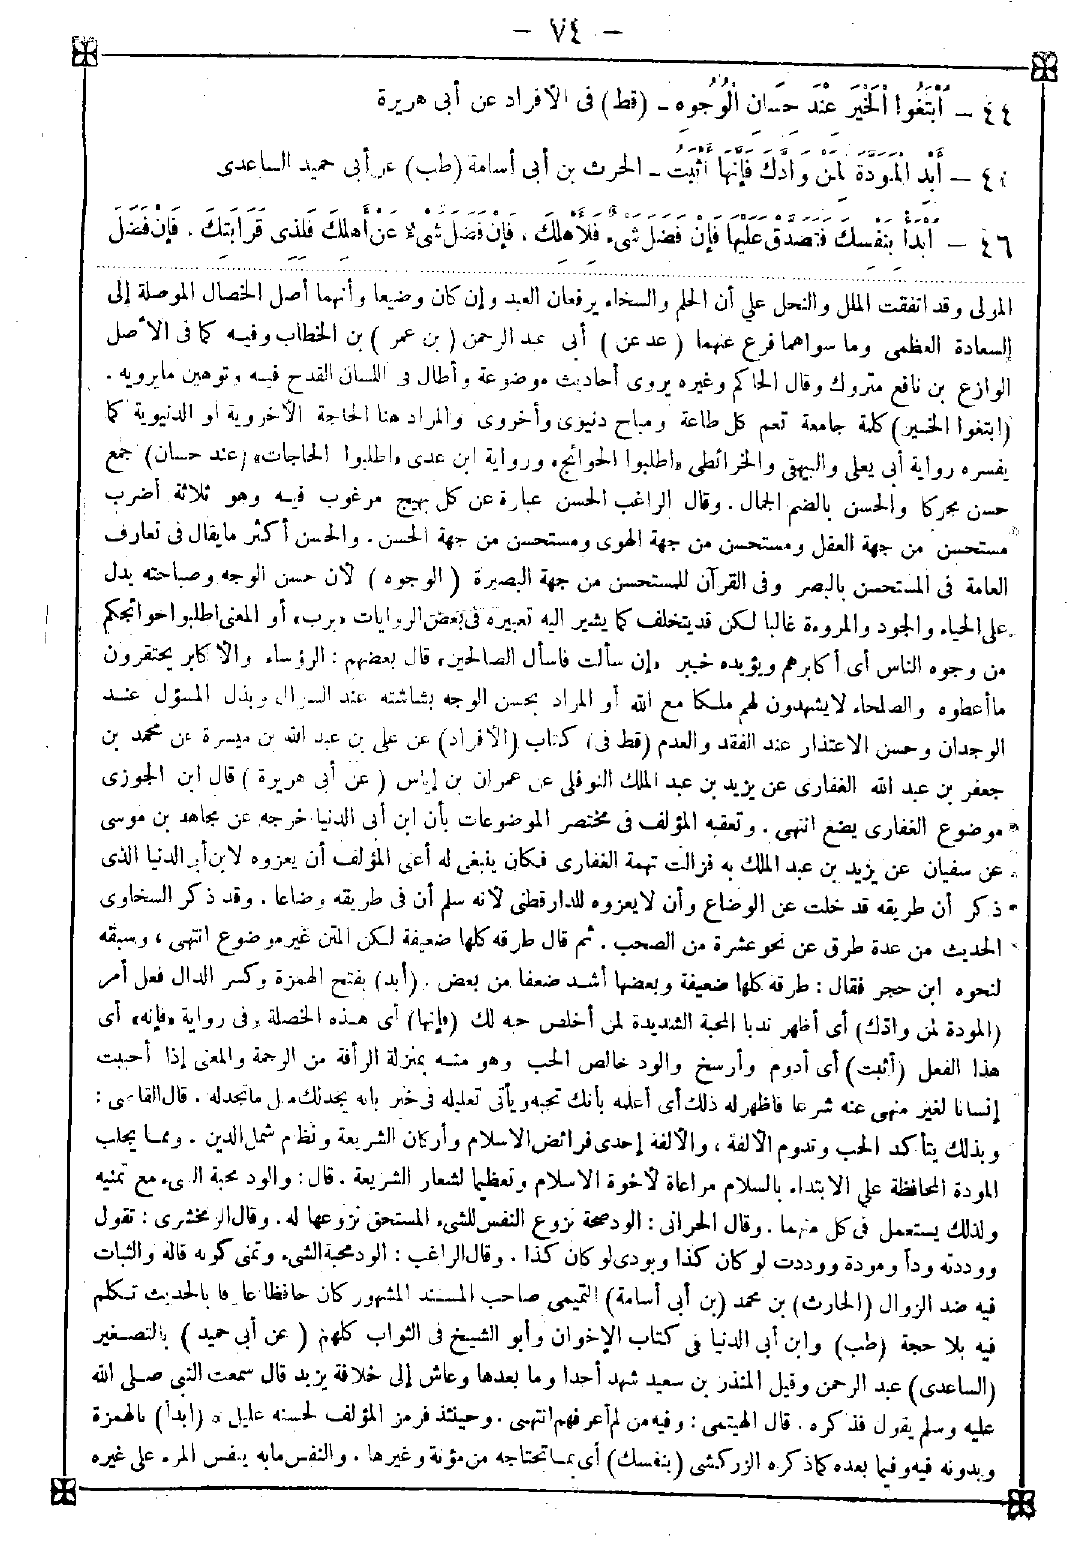 - ٧٤ -
٤٤ - اُبْتَغُوا الْخَيْرَ عِنْدَ حِسَانِ الْوُجُوهِ - (قط) فى الأفراد عن أبى هريرة
٤٥ - أَبْدِ الْمَوَدَّةَ لِمَنْ وَادَّكَ فَإِنَّهَا أَثْبَتُ - الحرث بن أبى أسامة (طب) عن أبى حميد الساعدى
٤٦ - اُبْدَأْ بِنَفْسِكَ فَتَصَدَّقْ عَلَيْهَا فَإِنْ فَضَلَ شَىْءٌ فَلِأَهْلِكَ، فَإِنْ فَضَلَ شَىْءٌ عَنْ أَهْلِكَ فَلِذِى قَرَابَتِكَ، فَإِنْ فَضَلَ
المولى وقد اتفقت الملل والنحل على أن الحلم والسخاء يرفعان العبد وإن كان وضيعا وأنهما أصل الخصال الموصلة إلى
السعادة العظمى وما سواهما فرع عنهما (عد عن) أبى عبد الرحمن (بن عمر) بن الخطاب وفيه كما فى الأصل
الوازع بن نافع متروك وقال الحاكم وغيره يروى أحاديث موضوعة وأطال فى اللسان القدح فيه وتوهين مايرويه .
(ابتغوا الخير) كلمة جامعة تعم كل طاعة ومباح دنيوى وأخروى والمراد هنا الحاجة الأخروية أو الدنيوية كما
يفسره رواية أبى يعلى والبيهقى والخرائطى «اطلبوا الحوائج» ورواية ابن عدى «اطلبوا الحاجات» (عند حسان) جمع
حسن محركا والحسن بالضم الجمال . وقال الراغب الحسن عبارة عن كل بهيج مرغوب فيه وهو ثلاثة أضرب
مستحسن من جهة العقل ومستحسن من جهة الهوى ومستحسن من جهة الحسن . والحسن أكثر مايقال فى تعارف
العامة فى المستحسن بالبصر وفى القرآن للمستحسن من جهة البصيرة (الوجوه) لأن حسن الوجه وصباحته يدل
على الحياء والجود والمروءة غالبا لكن قد يتخلف كما يشير اليه تعبيره فى بعض الروايات «برب» أو المعنى اطلبوا حوائجكم
من وجوه الناس أى أكابرهم ويؤيده خبير «إن سألت فاسأل الصالحين» قال بعضهم : الرؤساء والأكابر يحتقرون
ماأعطوه والصلحاء لايشهدون لهم ملكا مع الله أو المراد بحسن الوجه بشاشته عند السؤال وبذل المسؤل عند
الوجدان وحسن الاعتذار عند الفقد والعدم (قط فى) كتاب (الأفراد) عن على بن عبد الله بن ميسرة عن محمد بن
جعفر بن عبد الله الغفارى عن يزيد بن عبد الملك النوفلى عن عمران بن إياس (عن أبى هريرة) قال ابن الجوزى
موضوع الغفارى يضع انتهى . وتعقبه المؤلف فى مختصر الموضوعات بأن ابن أبى الدنيا خرجه عن مجاهد بن موسى
عن سفيان عن يزيد بن عبد الملك به فزالت تهمة الغفارى فكان ينبغى له أعى المؤلف أن يعزوه لابن أبى الدنيا الذى
ذكر أن طريقه قد خلت عن الوضاع وأن لايعزوه للدارقطنى لأنه سلم أن فى طريقه وضاعا . وقد ذكر السخاوى
الحديث من عدة طرق عن نحو عشرة من الصحب . ثم قال طرقه كلها ضعيفة لكن المتن غير موضوع انتهى ، وسبقه
لنحوه ابن حجر فقال : طرقه كلها ضعيفة وبعضها أشد ضعفا من بعض . (أبد) بفتح الهمزة وكسر الدال فعل أمر
(المودة لمن وادّك) أى أظهر ندبا المحبة الشديدة لمن أخلص حبه لك (فإنها) أى هذه الخصلة وفى رواية «فإنه» أى
هذا الفعل (أثبت) أى أدوم وأرسخ والود خالص الحب وهو منه بمنزلة الرأفة من الرحمة والمعنى إذا أحببت
إنسانا لغير منهى عنه شرعا فاظهر له ذلك أى أعلمه بأنك تحبه ويأتى تعليله فى خبر بانه يجد لك مثل ماتجد له . قال القاضى :
وبذلك يتأكد الحب وتدوم الألفة ، والألفة إحدى فرائض الاسلام وأركان الشريعة ونظام شمل الدين . ومما يجلب
المودة المحافظة على الابتداء بالسلام مراعاة لأخوة الاسلام وتعظيما لشعار الشريعة . قال : والود محبة الشىء مع تمنيه
ولذلك يستعمل فى كل منهما . وقال الحرانى : الود صحة نزوع النفس للشىء المستحق نزوعها له . وقال الزمخشرى : تقول
وودته وداً ومودة ووددت لو كان كذا وبودى لو كان كذا . وقال الراغب : الود محبة الشىء وتمنى كونه قاله والثبات
فيه ضد الزوال (الحارث) بن محمد (بن أبى أسامة) التميمى صاحب المسند المشهور كان حافظا عارفا بالحديث تكلم
فيه بلا حجة (طب) وابن أبى الدنيا فى كتاب الإخوان وأبو الشيخ فى الثواب كلهم (عن أبى حميد) بالتصغير
(الساعدى) عبد الرحمن وقيل المنذر بن سعيد شهد أحدا وما بعدها وعاش إلى خلافة يزيد قال سمعت النبى صلى الله
عليه وسلم يقول فذكره . قال الهيتمى : وفيه من لم أعرفهم انتهى . وحينئذ فرمز المؤلف لحسنه عليل (ابدأ) بالهمزة
وبدونه فيه وفيما بعده كما ذكره الزركشى (بنفسك) أى بما تحتاجه من مؤنة وغيرها . والنفس مابه ينفس المرء على غيره